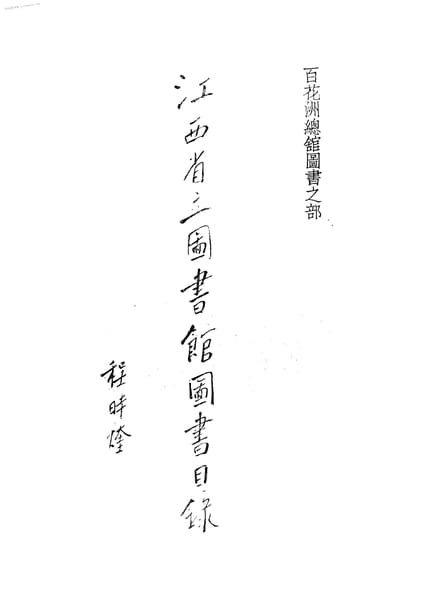 百花洲總舘圖書之部
江西省立圖書館圖書目錄
程時煃